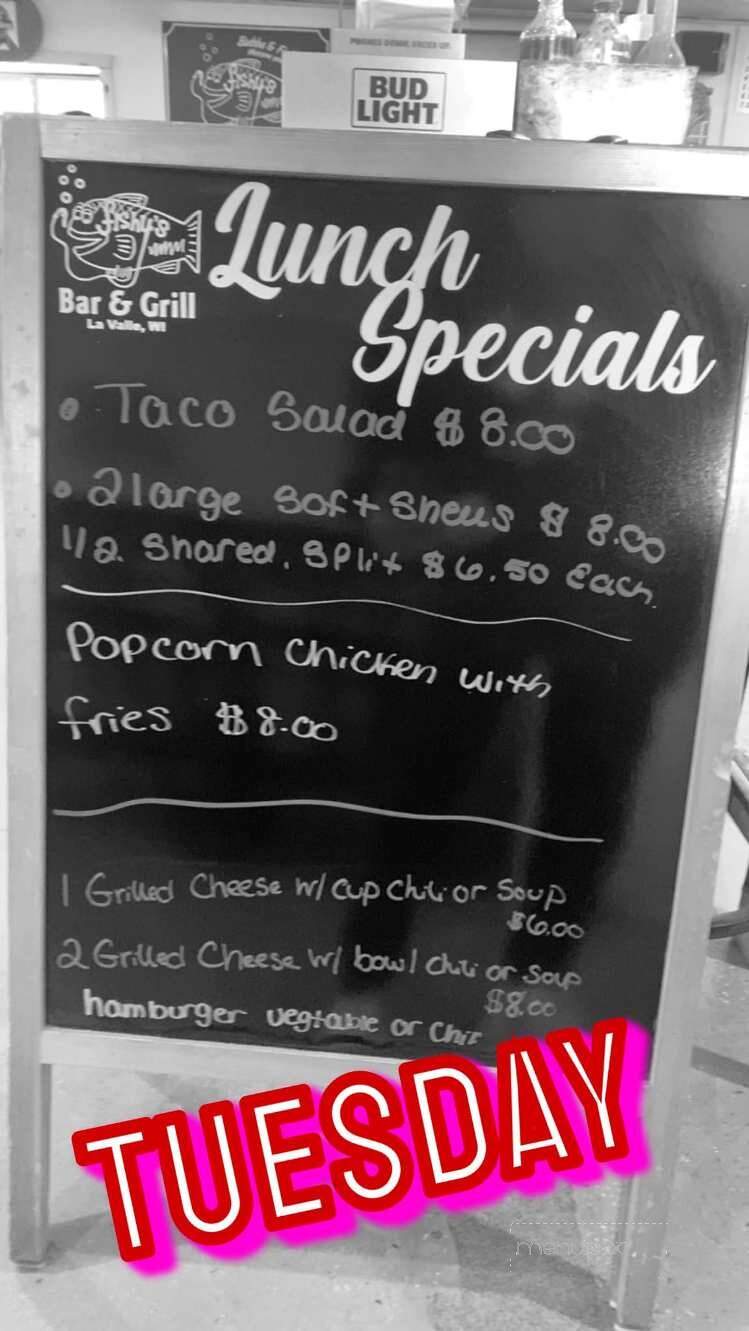 BUD
LIGHT
Fishy's
Fishy's
Bar & Grill
La Valle, WI
Lunch
Specials
• Taco Salad $8.00
• 2 large Soft Shells $8.00
1/2 Shared, Split $6.50 Each.
Popcorn Chicken with
fries $8.00
1 Grilled Cheese w/ cup chili or Soup
$6.00
2 Grilled Cheese w/ bowl chili or Soup
$8.00
hamburger vegtable or chili
TUESDAY